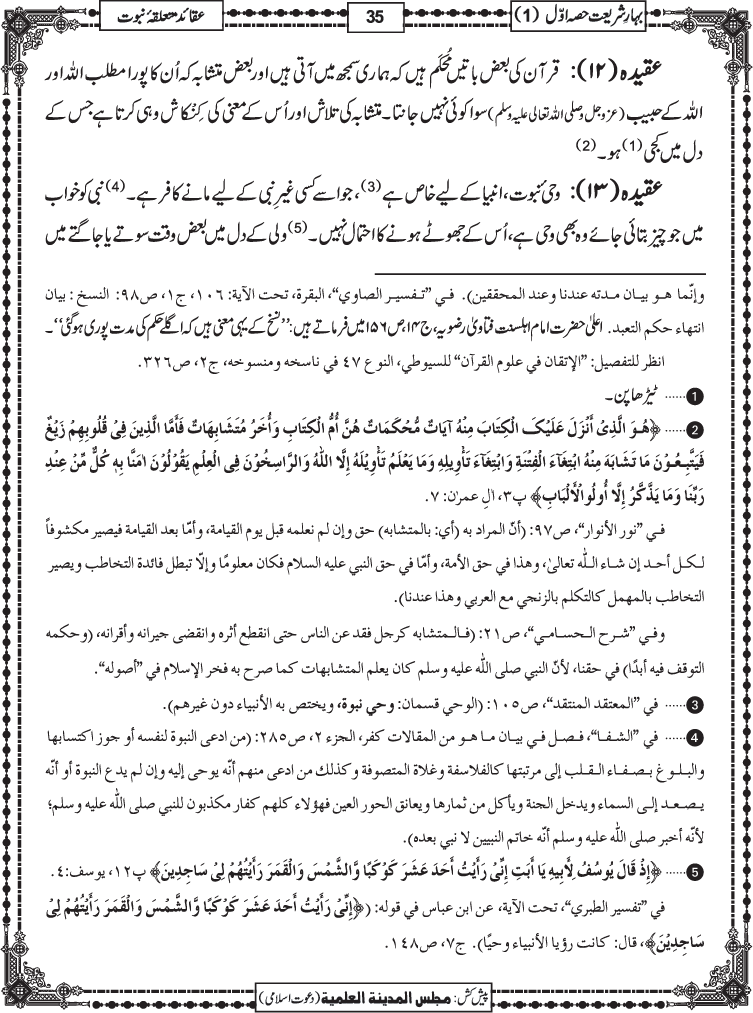 بہارِ شریعت حصہ اوّل (1)
35
عقائد متعلقۂ نبوت
عقیدہ (۱۲): قرآن کی بعض باتیں مُحکَم ہیں کہ ہماری سمجھ میں آتی ہیں اور بعض متشابہ کہ اُن کا پورا مطلب اللہ اور
اللہ کے حبیب (عزوجل وصلی اللہ تعالیٰ علیہ وسلم) سوا کوئی نہیں جانتا۔ متشابہ کی تلاش اور اُس کے معنی کی کِنْکاش وہی کرتا ہے جس کے
دل میں کجی (1) ہو۔ (2)
عقیدہ (۱۳): وحیِ نبوت، انبیا کے لیے خاص ہے (3)، جو اسے کسی غیرِ نبی کے لیے مانے کافر ہے۔ (4) نبی کو خواب
میں جو چیز بتائی جائے وہ بھی وحی ہے، اُس کے جھوٹے ہونے کا احتمال نہیں۔ (5) ولی کے دل میں بعض وقت سوتے یا جاگتے میں
وإنّما هو بيان مدته عندنا وعند المحققين). في ”تفسير الصاوي“، البقرة، تحت الآية: ١٠٦، ج١، ص٩٨: النسخ: بيان
انتهاء حكم التعبد. اعلیٰ حضرت امام اہلسنت فتاویٰ رضویہ، ج۱۴، ص۱۵۶ میں فرماتے ہیں: ”نسخ کے یہی معنی ہیں کہ اگلے حکم کی مدت پوری ہوگئی“۔
انظر للتفصيل: ”الإتقان في علوم القرآن“ للسيوطي، النوع ٤٧ في ناسخه ومنسوخه، ج٢، ص٣٢٦.
1 ...... ٹیڑھاپن۔
2 ...... ﴿هُوَ الَّذِیْ أَنْزَلَ عَلَیْکَ الْکِتَابَ مِنْهُ آیَاتٌ مُّحْکَمَاتٌ هُنَّ أُمُّ الْکِتَابِ وَأُخَرُ مُتَشَابِهَاتٌ فَأَمَّا الَّذِینَ فِیْ قُلُوبِهِمْ زَیْغٌ
فَیَتَّبِعُوْنَ مَا تَشَابَهَ مِنْهُ ابْتِغَاءَ الْفِتْنَةِ وَابْتِغَاءَ تَأْوِیلِهِ وَمَا یَعْلَمُ تَأْوِیلَهُ إِلَّا اللهُ وَالرَّاسِخُوْنَ فِی الْعِلْمِ یَقُوْلُوْنَ اٰمَنَّا بِهٖ کُلٌّ مِّنْ عِنْدِ
رَبِّنَا وَمَا یَذَّکَّرُ إِلَّا أُولُوا الْأَلْبَابِ﴾ پ٣، اٰلِ عمرٰن: ٧.
في ”نور الأنوار“، ص٩٧: (أنّ المراد به (أي: بالمتشابه) حق وإن لم نعلمه قبل يوم القيامة، وأمّا بعد القيامة فيصير مكشوفاً
لكل أحد إن شاء اللّٰه تعالیٰ، وهذا في حق الأمة، وأمّا في حق النبي عليه السلام فكان معلومًا وإلّا تبطل فائدة التخاطب ويصير
التخاطب بالمهمل كالتكلم بالزنجي مع العربي وهذا عندنا).
وفي ”شرح الحسامي“، ص٢١: (فالمتشابه كرجل فقد عن الناس حتى انقطع أثره وانقضى جيرانه وأقرانه، (وحكمه
التوقف فيه أبدًا) في حقنا، لأنّ النبي صلى اللّٰه عليه وسلم كان يعلم المتشابهات كما صرح به فخر الإسلام في ”أصوله“.
3 ...... في ”المعتقد المنتقد“، ص١٠٥: (الوحي قسمان: وحي نبوة، ويختص به الأنبياء دون غيرهم).
4 ...... في ”الشفا“، فصل في بيان ما هو من المقالات كفر، الجزء ٢، ص٢٨٥: (من ادعى النبوة لنفسه أو جوز اكتسابها
والبلوغ بصفاء القلب إلى مرتبتها كالفلاسفة وغلاة المتصوفة وكذلك من ادعى منهم أنّه يوحى إليه وإن لم يدع النبوة أو أنّه
يصعد إلى السماء ويدخل الجنة ويأكل من ثمارها ويعانق الحور العين فهؤلاء كلهم كفار مكذبون للنبي صلى اللّٰه عليه وسلم؛
لأنّه أخبر صلى اللّٰه عليه وسلم أنّه خاتم النبيين لا نبي بعده).
5 ...... ﴿إِذْ قَالَ یُوسُفُ لِأَبِیهِ یَا أَبَتِ إِنِّیْ رَأَیْتُ أَحَدَ عَشَرَ کَوْکَبًا وَّالشَّمْسَ وَالْقَمَرَ رَأَیْتُهُمْ لِیْ سَاجِدِینَ﴾ پ١٢، يوسف: ٤.
في ”تفسير الطبري“، تحت الآية، عن ابن عباس في قوله: (﴿إِنِّیْ رَأَیْتُ أَحَدَ عَشَرَ کَوْکَبًا وَّالشَّمْسَ وَالْقَمَرَ رَأَیْتُهُمْ لِیْ
سَاجِدِیْنَ﴾، قال: كانت رؤيا الأنبياء وحيًا). ج٧، ص١٤٨.
پیش کش: مجلس المدینة العلمیة (دعوت اسلامی)